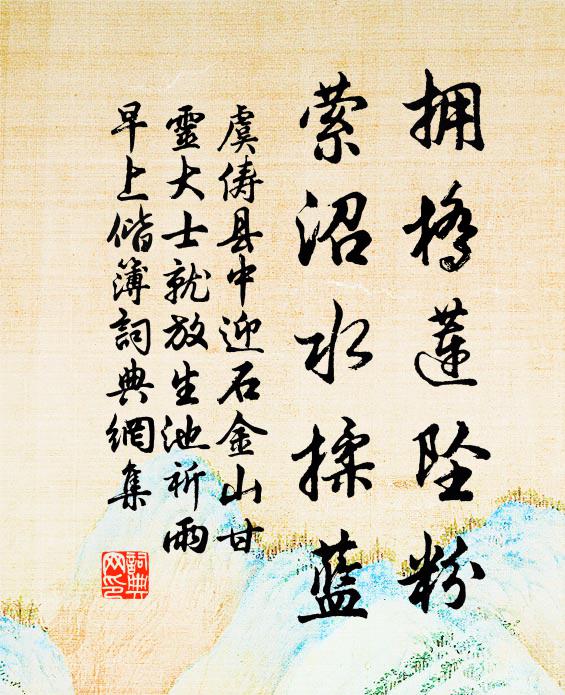 拥桥莲坠粉
萦沼水揉蓝
虞俦县中迎石金山甘
靈大士就放生池祈雨
早上偕簿詞典網集
詞典
网印